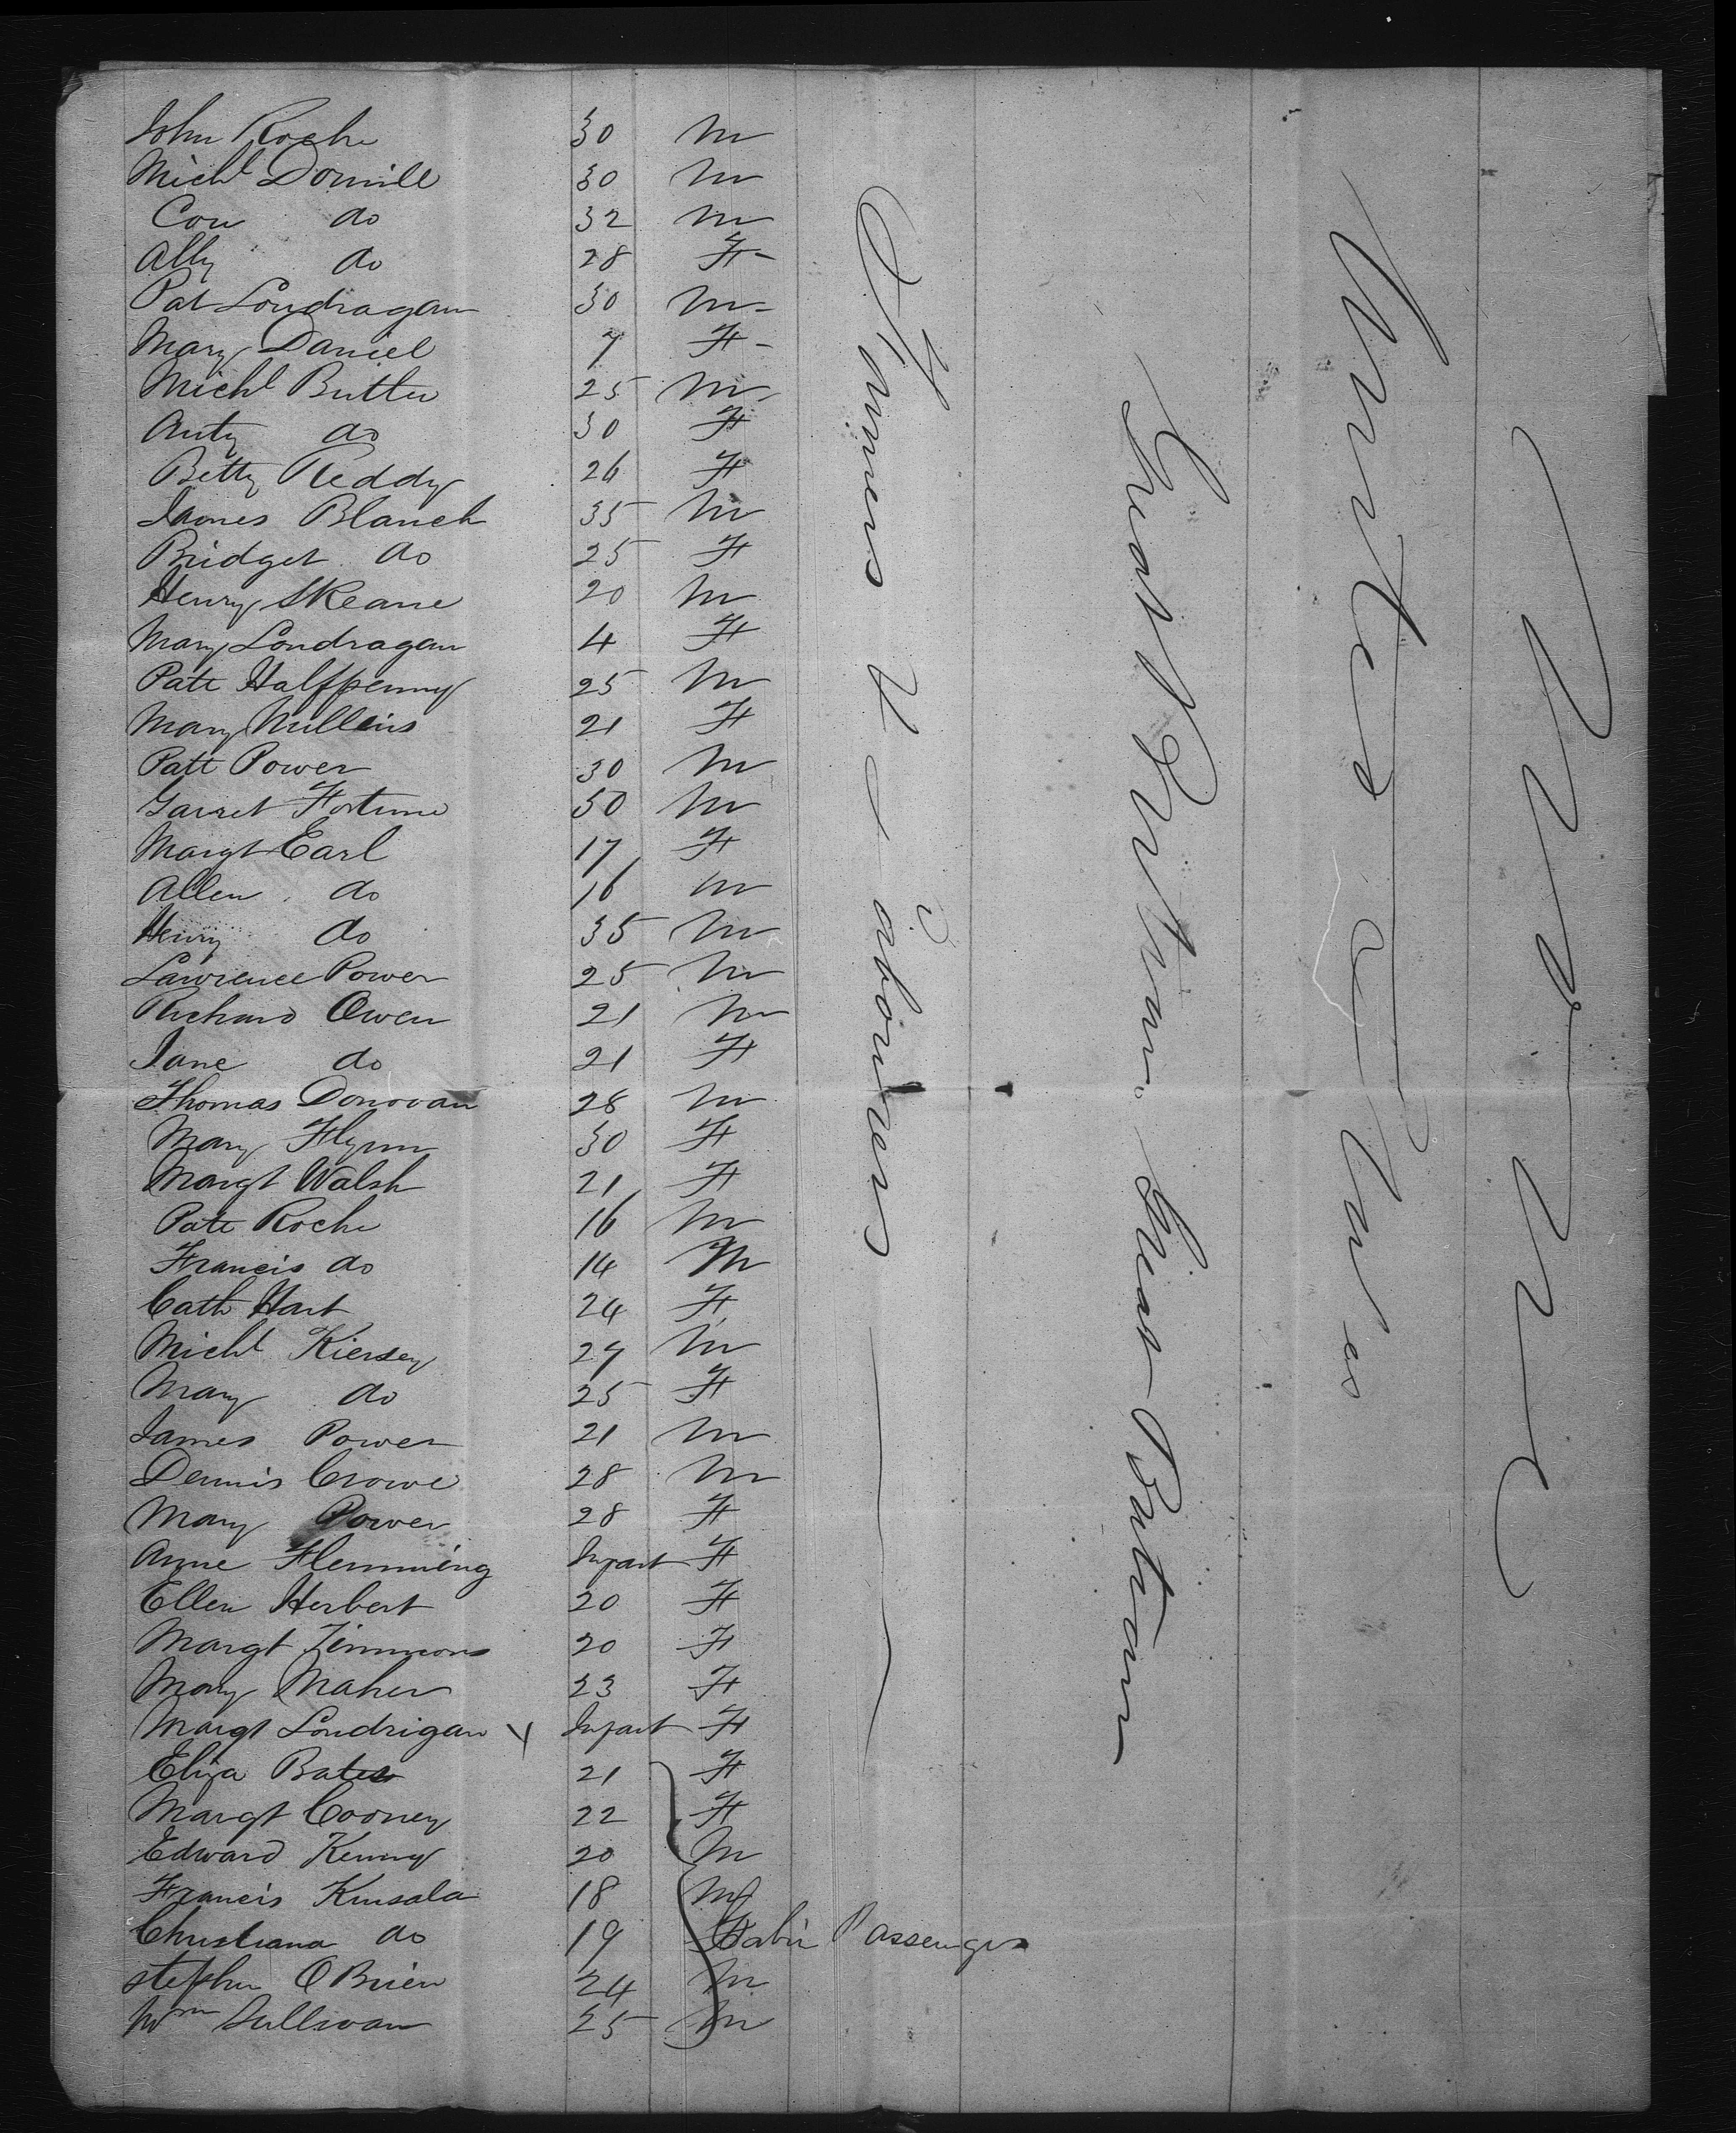 John Roche 30 M
Michl Donnill 30 M
Con do 32 M
Ally do 28 F
Pat Londragan 30 M
Mary Daniel 7 F
Michl Butler 25 M
Anty do 30 F
Betty Reddy 26 F
James Blanch 35 M
Bridget do 25 F
Henry Skeane 20 M
Mary Londragan 4 F
Patt Halfpenny 25 M
Mary Mullins 21 F
Patt Power 30 M
Garret Fortune 50 M
Margt Earl 17 F
Allen do 16 M
Henry do 35 M
Lawrence Power 25 M
Richard Owen 21 M
Jane do 21 F
Thomas Donovan 28 M
Mary Flynn 30 F
Margt Walsh 21 F
Patt Roche 16 M
Francis do 14 M
Cath Hart 24 F
Michl Kiersey 27 M
Mary do 25 F
James Power 21 M
Dennis Crowe 28 M
Mary Power 28 F
Anne Flemming Infant F
Ellen Herbert 20 F
Margt Timmons 20 F
Mary Maher 23 F
Margt Londrigan Infant F
Eliza Bates 21 F
Margt Cooney 22 F
Edward Kenny 20 M
Francis Kinsala 18 M
Christiana do 19 F Cabin Passengers
Stephen O Brien 24 M
Wm Sullivan 25 M
Farmers & Labourers
Great Britain Great Britain
United States